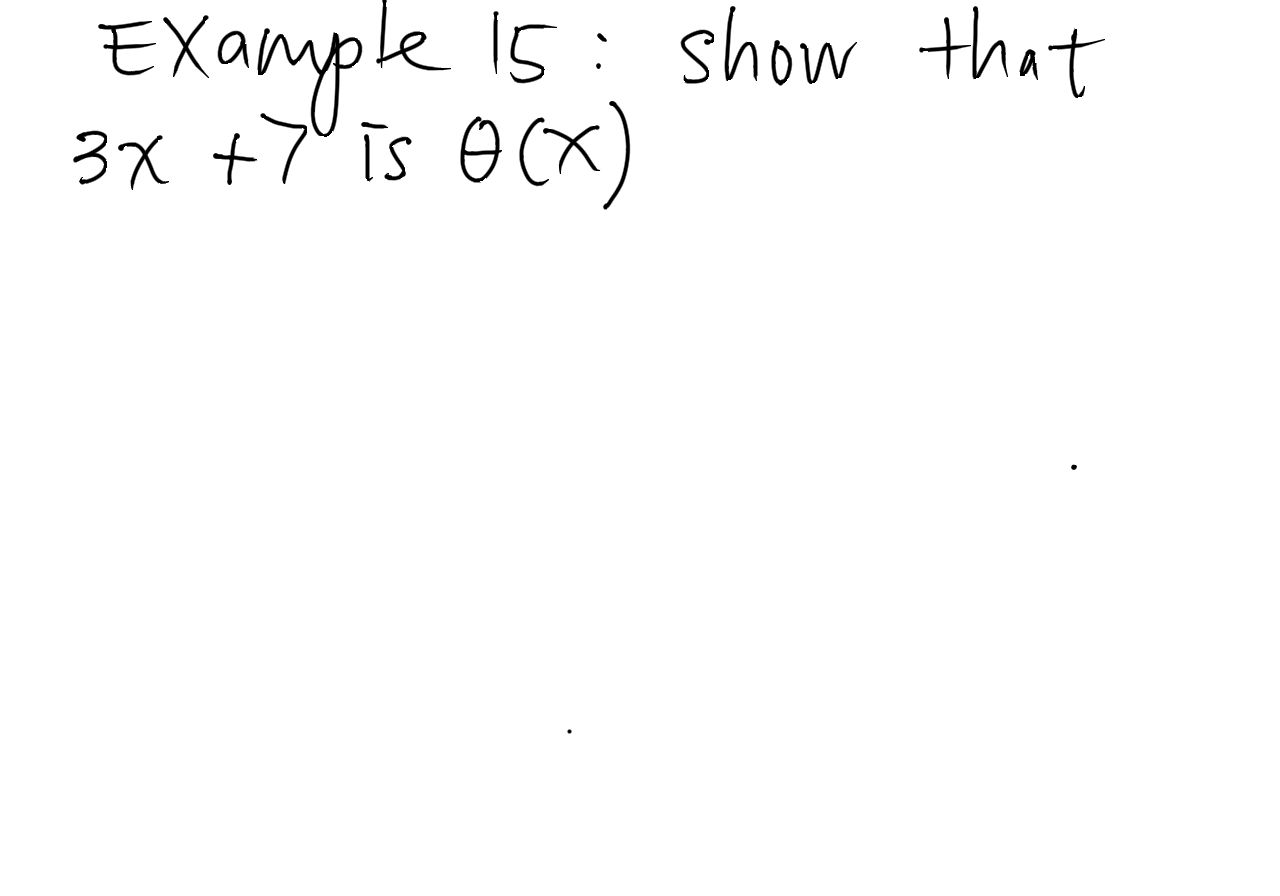 Example 15: show that
3x + 7 is θ(x)